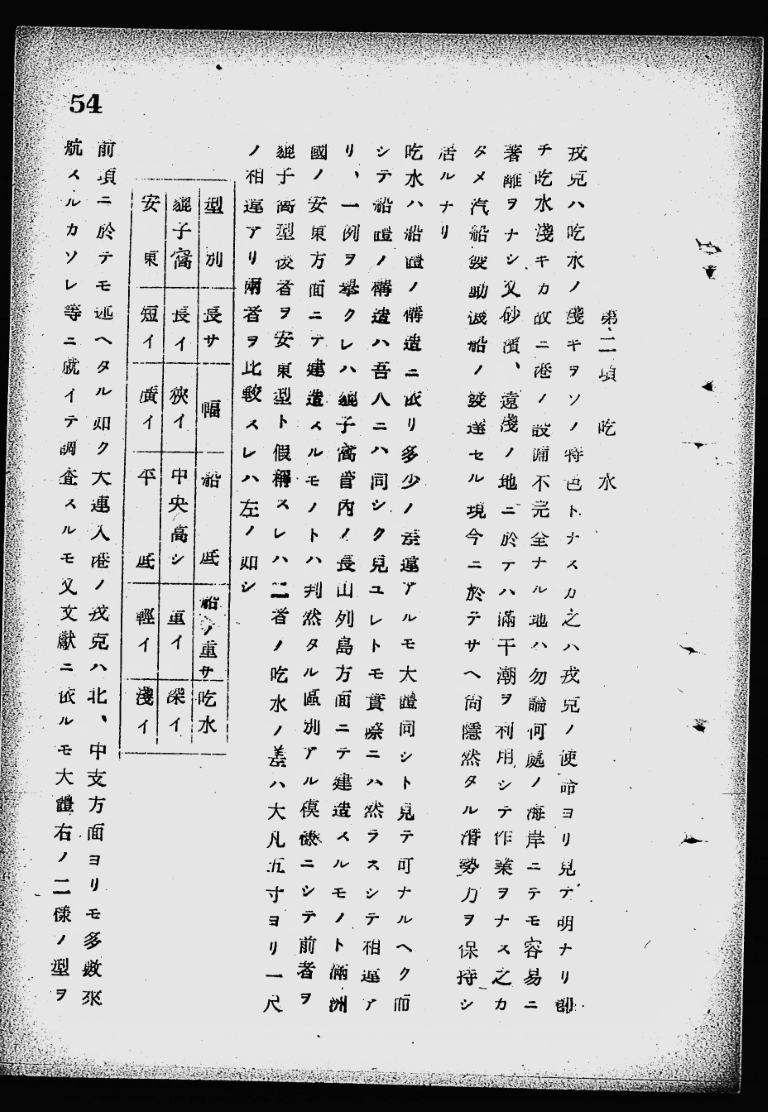 54
第二項 吃水
戎克ハ吃水ノ淺キヲソノ特色トナスカ之ハ戎克ノ使命ヨリ見テ明ナリ即
チ吃水淺キカ故ニ港ノ設備不完全ナル地ハ勿論何處ノ海岸ニテモ容易ニ
著離ヲナシ又砂濱、遠淺ノ地ニ於テハ滿干潮ヲ利用シテ作業ヲナス之カ
タメ汽船發動機船ノ發達セル現今ニ於テサヘ尙隱然タル潛勢力ヲ保持シ
居ルナリ
吃水ハ船體ノ構造ニ依リ多少ノ差違アルモ大體同シト見テ可ナルヘク而
シテ船體ノ構造ハ吾人ニハ同シク見ユレトモ實際ニハ然ラスシテ相違ア
リ、一例ヲ擧クレハ貔子窩管內ノ長山列島方面ニテ建造スルモノト滿洲
國ノ安東方面ニテ建造スルモノトハ判然タル區別アル模樣ニシテ前者ヲ
貔子窩型後者ヲ安東型ト假稱スレハ二者ノ吃水ノ差ハ大凡五寸ヨリ一尺
ノ相違アリ兩者ヲ比較スレハ左ノ如シ
型別 長サ 幅 船底 船ノ重サ 吃水
貔子窩 長イ 狹イ 中央高シ 重イ 深イ
安東 短イ 廣イ 平底 輕イ 淺イ
前項ニ於テモ述ヘタル如ク大連入港ノ戎克ハ北、中支方面ヨリモ多數來
航スルカソレ等ニ就イテ調査スルモ又文獻ニ依ルモ大體右ノ二樣ノ型ヲ